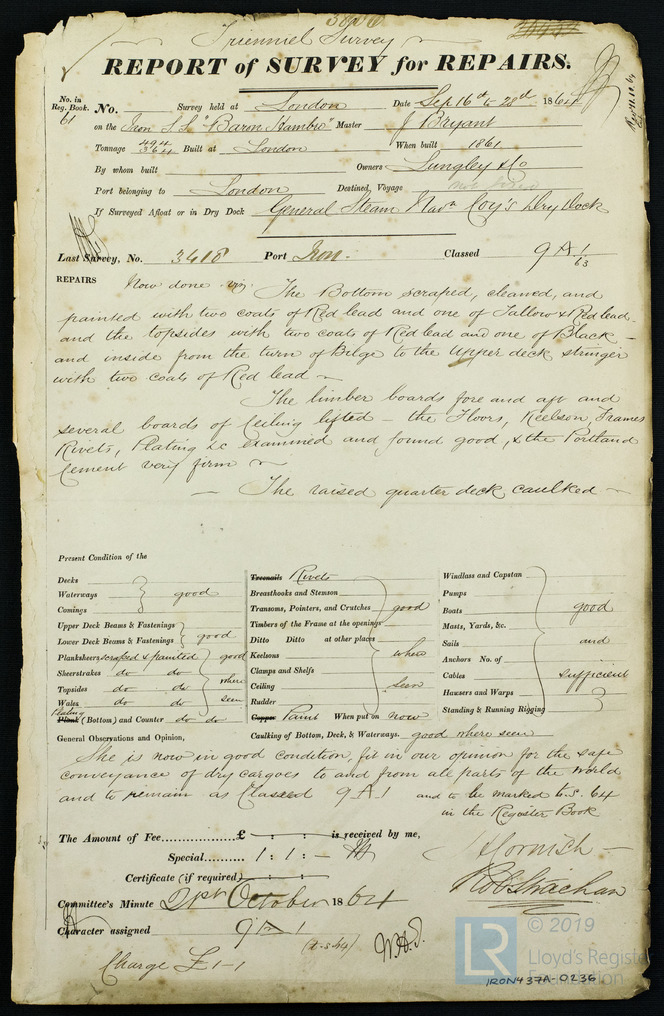 Trienniel Survey
REPORT of SURVEY for REPAIRS.
No. in Reg. Book. 61 No. Survey held at London Date Sep 16th to 28th 1864
on the Iron S.S. "Baron Hambro" Master J Bryant
Tonnage 494 364 Built at London When built 1861
By whom built Owners Lungley & Co
Port belonging to London Destined Voyage not fixed
If Surveyed Afloat or in Dry Dock General Steam Navn Coy's Dry Dock
Last Survey, No. 3418 Port Iron. Classed 9 A 1/63
REPAIRS Now done viz. The Bottom scraped, cleaned, and
painted with two coats of Red lead and one of Tallow & Red lead
and the topsides with two coats of Red lead and one of Black
and inside from the turn of Bilge to the Upper deck stringer
with two coats of Red lead
The limber boards fore and aft and
several boards of Ceiling lifted - the Floors, Keelson, Frames
Rivets, Plating &c examined and found good, & the Portland
Cement very firm
The raised quarter deck caulked
Present Condition of the
Decks
Waterways good
Comings
Upper Deck Beams & Fastenings
Lower Deck Beams & Fastenings good
Planksheers scraped & painted good
Sheerstrakes do do where
Topsides do do
Wales do do seen
Plating Plank (Bottom) and Counter do do
Treenails Rivets
Breasthooks and Stemson
Transoms, Pointers, and Crutches good
Timbers of the Frame at the openings
Ditto Ditto at other places
Keelsons where
Clamps and Shelfs
Ceiling seen
Rudder
Copper Paint When put on now
Caulking of Bottom, Deck, & Waterways. good where seen
Windlass and Capstan
Pumps
Boats good
Masts, Yards, &c.
Sails and
Anchors No. of
Cables sufficient
Hawsers and Warps
Standing & Running Rigging
General Observations and Opinion,
She is now in good condition, fit in our opinion for the safe
conveyance of dry cargoes to and from all parts of the world
and to remain as Classed 9 A 1 and to be marked t.s. 64
in the Register Book
The Amount of Fee £ : : is received by me,
Special 1 : 1 : -
Certificate (if required) : :
J Hornish
Rob Strachan
Committee's Minute 21st October 1864
Character assigned 9 A 1
(t.s 64) W.H.T.
Charge £1-1
© 2019
LR Lloyd's Register Foundation
IRON437A-0236